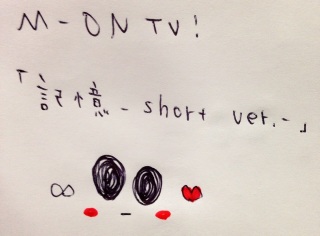 M-ON TV!
「記憶 - short ver.-」
∞